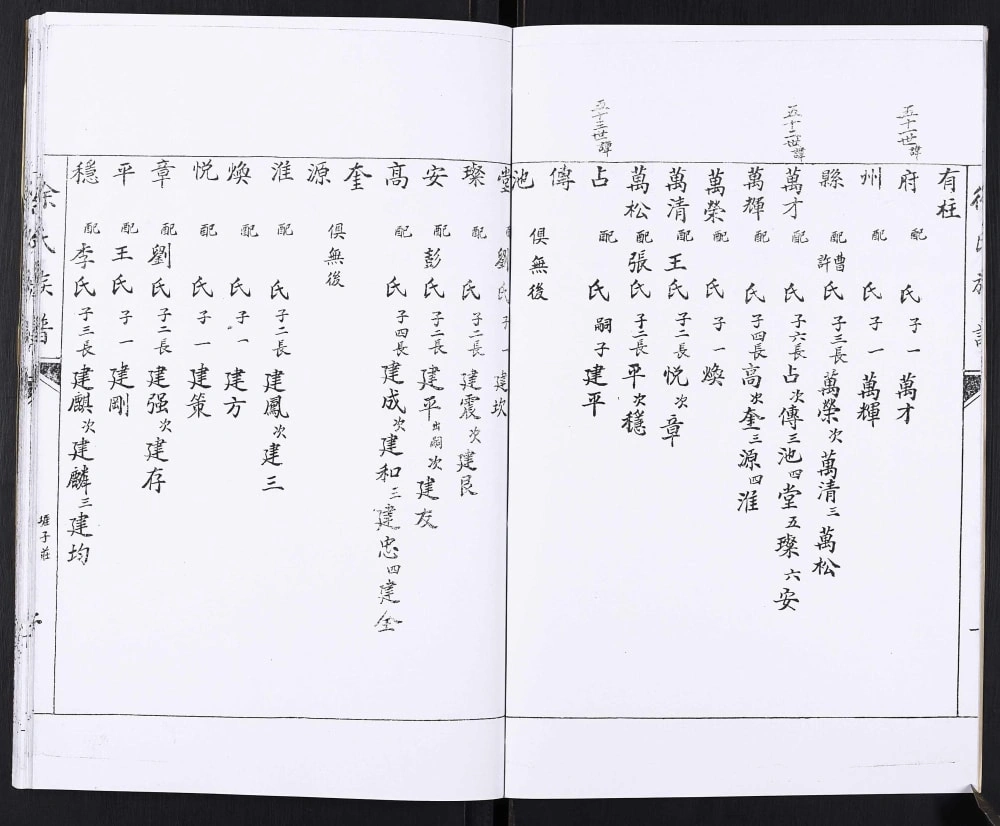 徐氏族譜
有柱
五十一世諱
府 配 氏 子一 萬才
州 配 氏 子一 萬輝
縣 配曹許氏 子三長 萬榮 次 萬清 三 萬松
五十二世諱
萬才 配 氏 子六長 占 次 傳 三 池 四 堂 五 璨 六 安
萬輝 配 氏 子四長 高 次 奎 三 源 四 淮
萬榮 配 氏 子一 煥
萬清 配 王氏 子二長 悦 次 章
萬松 配 張氏 子二長 平 次 穩
五十三世譁
占 配 氏 嗣子 建平
傳
池 俱無後
堂 配 劉氏 子一 建坎
璨 配 氏 子二長 建震 次 建艮
安 配 彭氏 子二長 建平 出嗣 次 建友
高 配 氏 子四長 建成 次 建和 三 建忠 四 建全
奎
源 俱無後
淮 配 氏 子二長 建鳳 次 建三
煥 配 氏 子一 建方
悦 配 氏 子一 建策
章 配 劉氏 子二長 建强 次 建存
平 配 王氏 子一 建剛
穩 配 李氏 子三長 建麒 次 建麟 三 建均
徐氏族譜
子莊